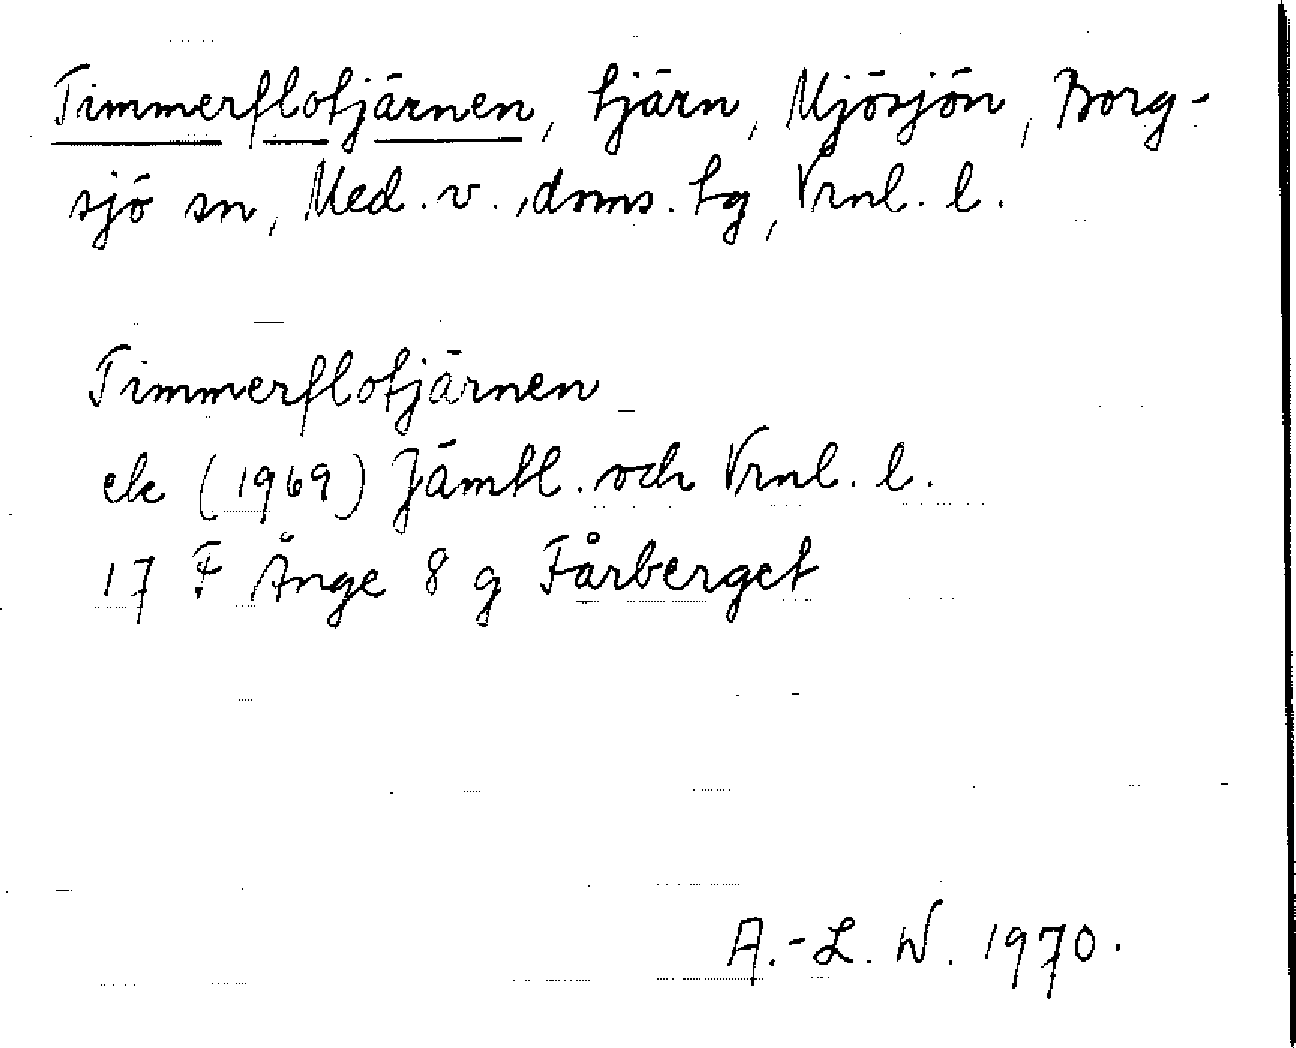 Timmerflotjärnen, tjärn, Mjösjön, Borg-
sjö sn, Med. v., doms. tg, Vrnl. l.
Timmerflotjärnen
ek (1969) Jämtl. och Vrnl. l.
17 F Ånge 8 g Fårberget
A.-L. W. 1970.